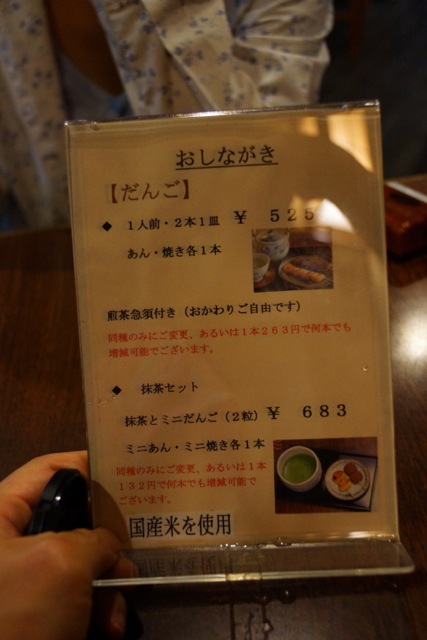 おしながき
【だんご】
◆ 1人前・2本1皿 ￥ 525
あん・焼き各1本
煎茶急須付き（おかわりご自由です）
同種のみにご変更、あるいは1本263円で何本でも
増減可能でございます。
◆ 抹茶セット
抹茶とミニだんご（2粒）￥ 683
ミニあん・ミニ焼き各1本
同種のみにご変更、あるいは1本
132円で何本でも増減可能で
ございます。
国産米を使用